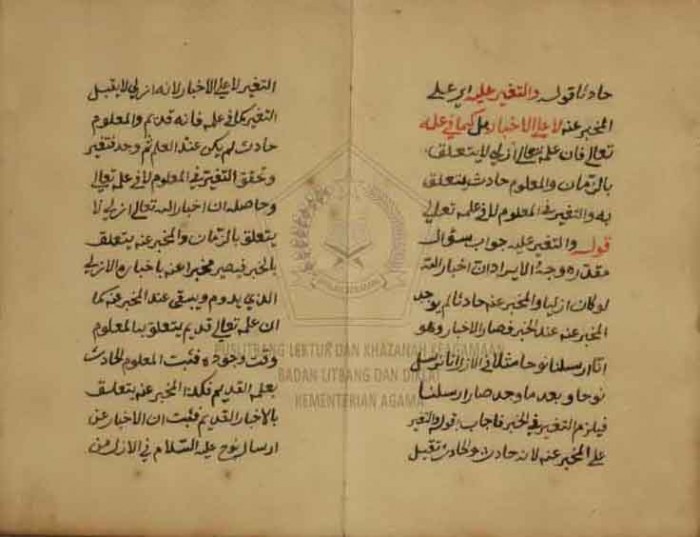 حادثا قوله والتغير عليه اي على
المخبر عنه لا على الاخبار بل كما في علمه
تعالى فان علمه تعالى ازلي لا يتعلق
بالزمان والمعلوم حادث يتعلق
به والتغير في المعلوم لا في علمه تعالى
قوله والتغير عليه جواب سؤال
مقدر وجه الايراد ان اخبار الله
لو كان ازليا والمخبر عنه حادثا لم يوجد
المخبر عنه عند الخبر فصار الاخبار وهو
انا ارسلنا نوحا مثلا في الازل انا نرسل
نوحا وبعد ما وجد صار ارسلنا
فيلزم التغير في الخبر فاجاب بقوله والتغير
على المخبر عنه لانه حادث والحادث تقبل
التغير لا على الاخبار لانه ازلي لا يقبل
التغير كما في علمه فانه قديم والمعلوم
حادث لم يكن عند العلم ثم وجد فتغير
وتحقق التغير في المعلوم لا في علمه تعالى
وحاصله ان اخبار الله تعالى ازلي لا
يتعلق بالزمان والمخبر عنه يتعلق
بالخبر فيصير مخبرا عنه باخباره الازلي
الذي يدوم ويبقى عند المخبر عنه كما
ان علمه تعالى قديم يتعلق بالمعلوم
وقت وجوده فثبت المعلوم الحادث
بعلمه القديم فكذا المخبر عنه يتعلق
بالاخبار القديم فثبت ان الاخبار عن
ارسال نوح عليه السلام في الازل من
PUSLITBANG LEKTUR DAN KHAZANAH KEAGAMAAN
BADAN LITBANG DAN DIKLAT
KEMENTERIAN AGAMA